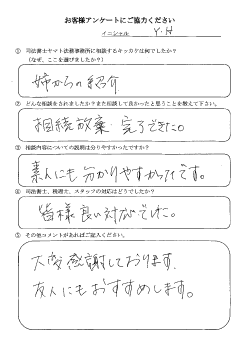 お客様アンケートにご協力ください
イニシャル Y.H
① 司法書士ヤマト法務事務所に相談するキッカケは何でしたか?
(なぜ、ここを選びましたか?)
姉からの紹介
② どんな相談をされましたか?また相談して良かったと思うことを教えて下さい。
相続放棄 完了できた。
③ 相談内容についての説明は分りやすかったですか?
素人にも分かりやすかったです。
④ 司法書士、税理士、スタッフの対応はどうでしたか?
皆様良い対応でした。
⑤ その他コメントがあればご記入ください。
大変感謝しております。
友人にもおすすめします。